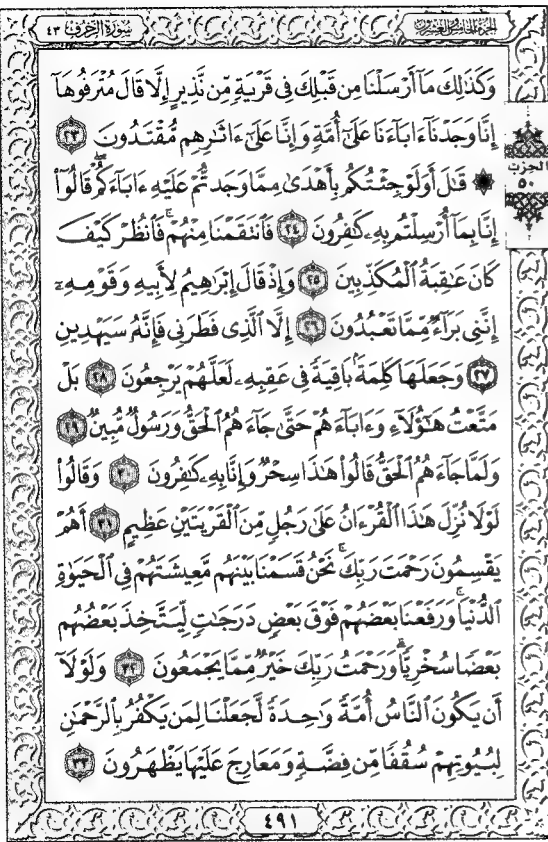 الجزء الخامس والعشرون
سورة الزخرف ٤٣
وَكَذَٰلِكَ مَآ أَرْسَلْنَا مِن قَبْلِكَ فِى قَرْيَةٍ مِّن نَّذِيرٍ إِلَّا قَالَ مُتْرَفُوهَآ
إِنَّا وَجَدْنَآ ءَابَآءَنَا عَلَىٰٓ أُمَّةٍ وَإِنَّا عَلَىٰٓ ءَاثَٰرِهِم مُّقْتَدُونَ ٢٣
الحزب
٥٠
۞ قَٰلَ أَوَلَوْ جِئْتُكُم بِأَهْدَىٰ مِمَّا وَجَدتُّمْ عَلَيْهِ ءَابَآءَكُمْ ۖ قَالُوٓا۟
إِنَّا بِمَآ أُرْسِلْتُم بِهِۦ كَٰفِرُونَ ٢٤ فَٱنتَقَمْنَا مِنْهُمْ ۖ فَٱنظُرْ كَيْفَ
كَانَ عَٰقِبَةُ ٱلْمُكَذِّبِينَ ٢٥ وَإِذْ قَالَ إِبْرَٰهِيمُ لِأَبِيهِ وَقَوْمِهِۦٓ
إِنَّنِى بَرَآءٌ مِّمَّا تَعْبُدُونَ ٢٦ إِلَّا ٱلَّذِى فَطَرَنِى فَإِنَّهُۥ سَيَهْدِينِ
٢٧ وَجَعَلَهَا كَلِمَةًۢ بَاقِيَةً فِى عَقِبِهِۦ لَعَلَّهُمْ يَرْجِعُونَ ٢٨ بَلْ
مَتَّعْتُ هَٰٓؤُلَآءِ وَءَابَآءَهُمْ حَتَّىٰ جَآءَهُمُ ٱلْحَقُّ وَرَسُولٌ مُّبِينٌ ٢٩
وَلَمَّا جَآءَهُمُ ٱلْحَقُّ قَالُوا۟ هَٰذَا سِحْرٌ وَإِنَّا بِهِۦ كَٰفِرُونَ ٣٠ وَقَالُوا۟
لَوْلَا نُزِّلَ هَٰذَا ٱلْقُرْءَانُ عَلَىٰ رَجُلٍ مِّنَ ٱلْقَرْيَتَيْنِ عَظِيمٍ ٣١ أَهُمْ
يَقْسِمُونَ رَحْمَتَ رَبِّكَ ۚ نَحْنُ قَسَمْنَا بَيْنَهُم مَّعِيشَتَهُمْ فِى ٱلْحَيَوٰةِ
ٱلدُّنْيَا ۚ وَرَفَعْنَا بَعْضَهُمْ فَوْقَ بَعْضٍ دَرَجَٰتٍ لِّيَتَّخِذَ بَعْضُهُم
بَعْضًا سُخْرِيًّا ۗ وَرَحْمَتُ رَبِّكَ خَيْرٌ مِّمَّا يَجْمَعُونَ ٣٢ وَلَوْلَآ
أَن يَكُونَ ٱلنَّاسُ أُمَّةً وَٰحِدَةً لَّجَعَلْنَا لِمَن يَكْفُرُ بِٱلرَّحْمَٰنِ
لِبُيُوتِهِمْ سُقُفًا مِّن فِضَّةٍ وَمَعَارِجَ عَلَيْهَا يَظْهَرُونَ ٣٣
٤٩١